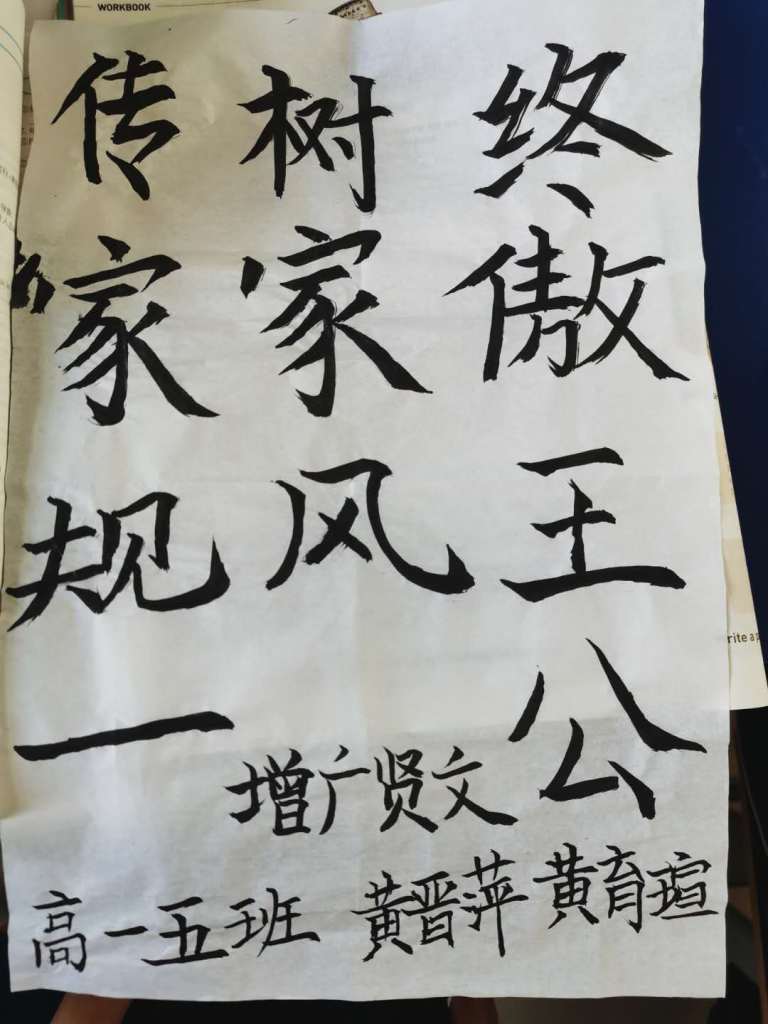 WORKBOOK
终傲王公
树家风
传家规一
增广贤文
高一五班 黄晋萍 黄育瑄